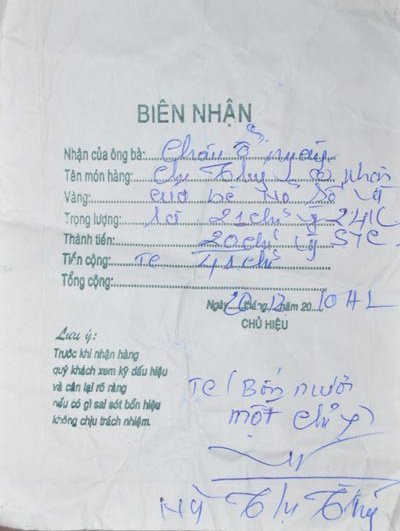 BIÊN NHẬN
Nhận của ông bà: Cháu ở ngày
Tên món hàng: Chị Thuý có nhận
Vàng: của bé Hồ số
Trọng lượng: 21 chỉ ý 24K
Thành tiền: 20 chỉ ý STC
Tiền công: TC 41 chỉ
Tổng cộng:
Ngày 20 tháng 12 năm 2010 AL
CHỦ HIỆU
Lưu ý:
Trước khi nhận hàng
quý khách xem kỹ dấu hiệu
và cân lại rõ ràng
nếu có gì sai sót bổn hiệu
không chịu trách nhiệm.
TC (Bốn mươi
một chỉ y)
Hà Thị Thuý